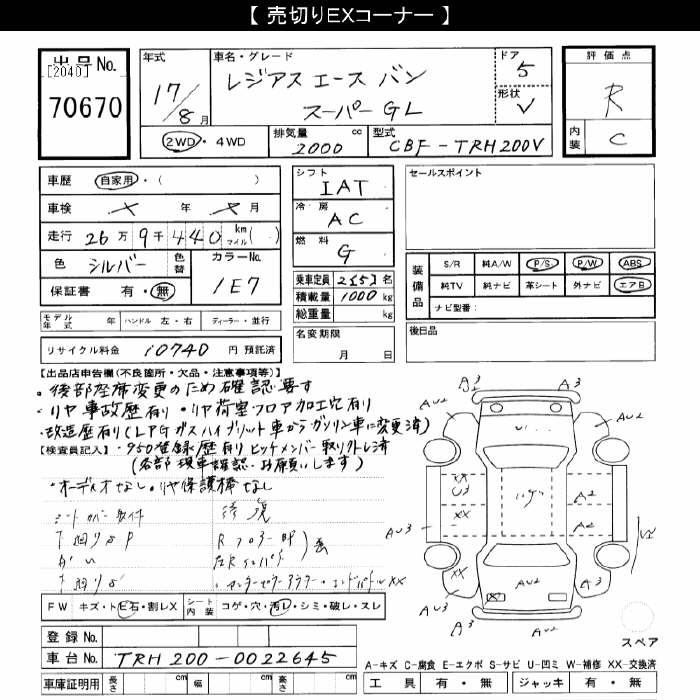 【 売切りEXコーナー 】
出品No.
[2040]
70670
年式
17/8月
車名・グレード
レジアス エース バン
スーパー GL
ドア
5
形状
V
評価点
R
内装
C
2WD・4WD
排気量 2000 cc
型式 CBF-TRH200V
車歴 自家用・( )
車検 年 月
走行 26万9千440 km マイル( )
色 シルバー 色替
カラーNo. 1E7
保証書 有・無
シフト
IAT
冷房
AC
燃料
G
乗車定員 2(5) 名
積載量 1000 kg
総重量 kg
名変期限
月 日
セールスポイント
装備品
S/R 純A/W P/S P/W ABS
純TV 純ナビ 革シート 外ナビ エアB
ナビ型番:
後日品
モデル年式 年 ハンドル 左・右 ディーラー・並行
リサイクル料金 10740 円 預託済
【出品店申告欄(不良箇所・欠品・注意事項等)】
・後部座席変更のため確認要す
・リヤ事故歴有り ・リヤ荷室フロア加工穴有り
・改造歴有り(LPGガスハイブリット車からガソリン車に変更済)
【検査員記入】・950登録歴有り ヒッチメンバー取りハズし済
(各部 現車確認 お願いします)
・オーディオなし。リヤ保護棒なし
シートカバー取付
修復
下廻りサP
Rフロアー
下廻りサ
A3 A3
AU2 AU2
U2
XX U3 パンク A2
XX A2
AU3 AU3 W2
XX AU2 A3
XX
AU3 A3 AU2
FW キズ・トビ石・割レX シート内装 コゲ・穴・汚レ・シミ・破レ・スレ
登録No.
車台No. TRH200-0022645
スペア
A-キズ C-腐食 E-エクボ S-サビ U-凹ミ W-補修 XX-交換済
車庫証明用 長さ cm 幅 cm 高さ cm
工具 有・無 ジャッキ 有・無